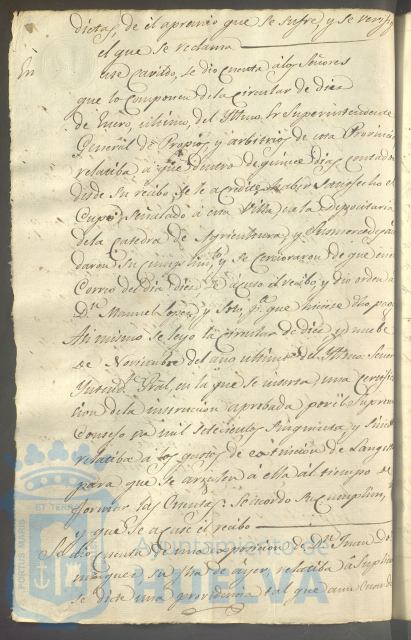 dictas, de il apremio que se sufre, y se
el que se reclama
En este Cavildo, se dio cuenta á los Señores
que lo componen de la circular de diez
de Enero, ultimo, del Yltmo. Sr Superintendente
General de Propios y arbitrios de esta Provincia
relatiba, á que dentro de quince dias contados
desde su recibo, se le acredite haber satisfecho el
Cupo, señalado á esta Villa, en la Depositaria
de la Catedra de Agricultura, y sus mercedes
daron su cumplimto y se
Correo del dia diez se acuso el recibo, y dio orden á
Dn Manuel Lopez, y Soto, pa que hiciese dho pago
Asi mismo se leyo la circular de diez y nuebe
de Noviembre del año ultimo del Yltmo Señor
Yntend. Gral, en la que se inserta, una certifica
cion de la instruccion aprobada por el Supremo
Consejo, en mil setecientos
relatiba á los gastos de extincion de Langosta
para que se arreglen á ella al tiempo de
formar las Cuentas: Se acordo su cumplim.
y que se acuse el recibo
Se dio cuenta de una oposicion de Dn Juan de
su fha de ayer, relatiba á
se dicte una providencia tal que
PORTUS MARIS
ET TERRAE
Ayuntamiento de
HUELVA